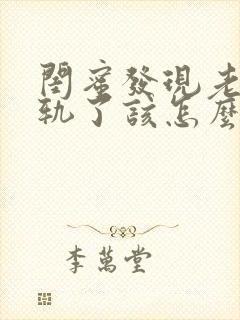 閨蜜發現老
軌了該怎麼
李萬堂